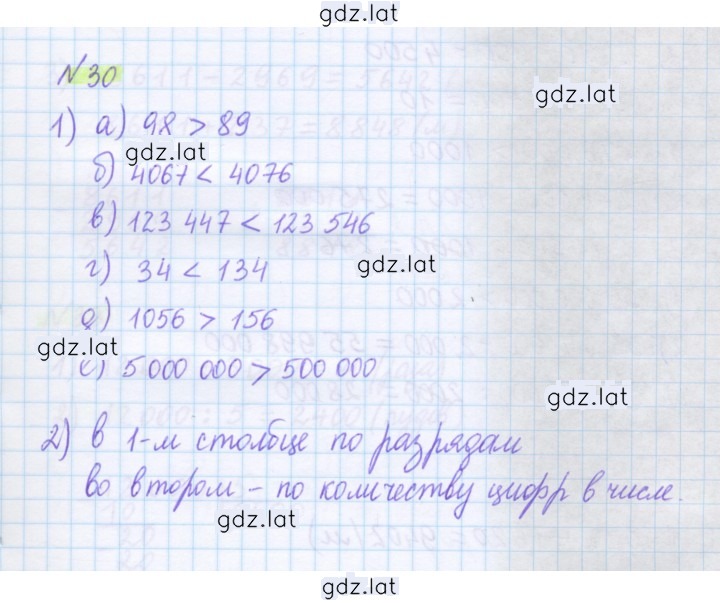 gdz.lat
№ 30
gdz.lat
1) а) 98 > 89
gdz.lat
б) 4067 < 4076
в) 123 447 < 123 546
г) 34 < 134
gdz.lat
д) 1056 > 156
gdz.lat
е) 5 000 000 > 500 000
gdz.lat
2) в 1-м столбце по разрядам
во втором – по количеству цифр в числе.
gdz.lat
gdz.lat